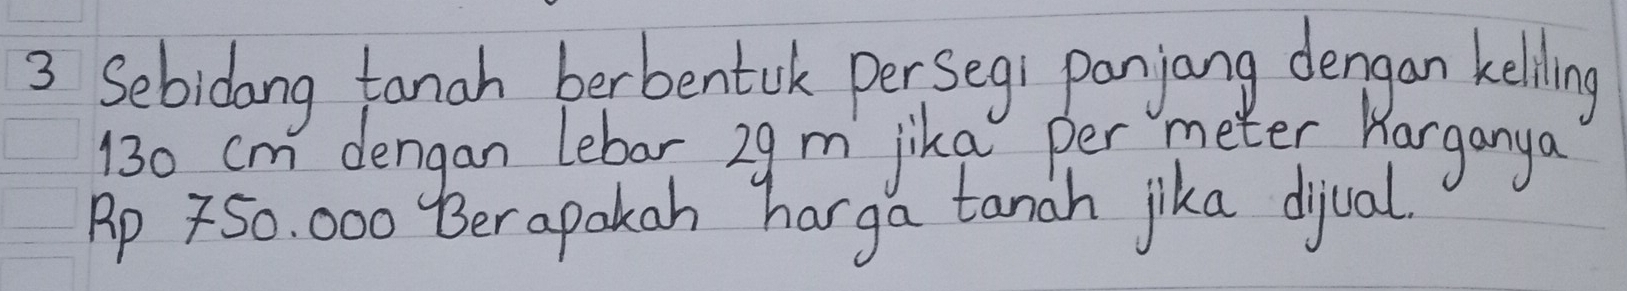 3 Sebidang tanah berbentuk persegi panjang dengan keliling
130 cm dengan lebar 29 m jika per meter Harganya
Rp 750.000 Berapakah harga tanah jika dijual.